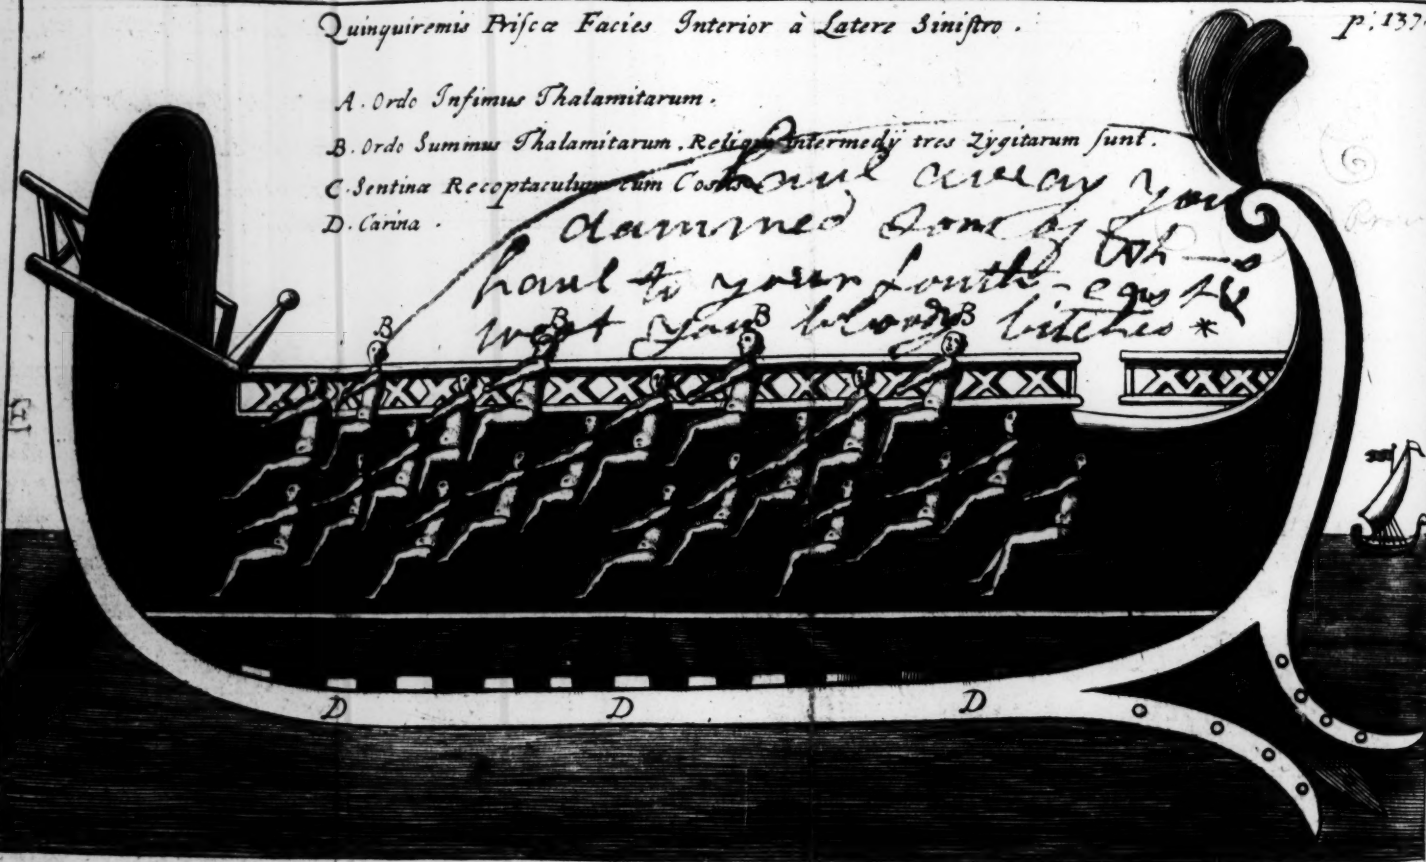 Quinquiremis Priſcæ Facies Interior à Latere Siniſtro.
p. 137.
A. Ordo Infimus Thalamitarum.
B. Ordo Summus Thalamitarum. Reliqui intermedÿ tres Zÿgitarum ſunt.
C. Sentinæ Recoptaculum cum Costis
D. Carina.
haul away you
damned Sons of Wh—s
haul to your South-east &
west you bloody bitches *
B B B B
D D D